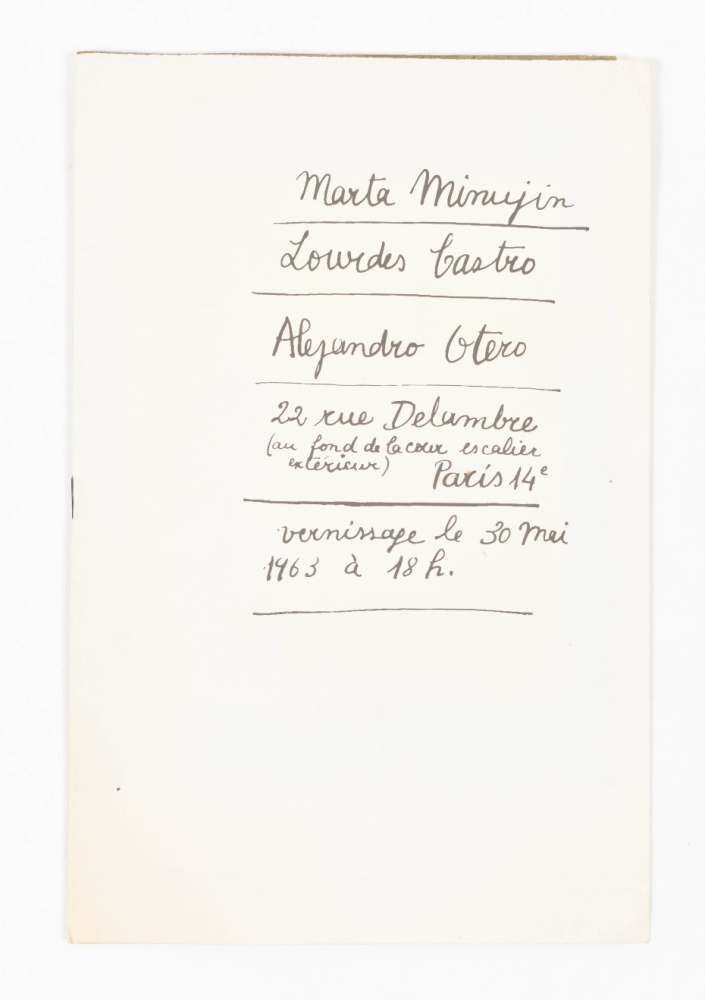 Marta Minujin
Lourdes Castro
Alejandro Otero
22 rue Delambre
(au fond de la cour escalier
extérieur) Paris 14e
vernissage le 30 Mai
1963 à 18 h.